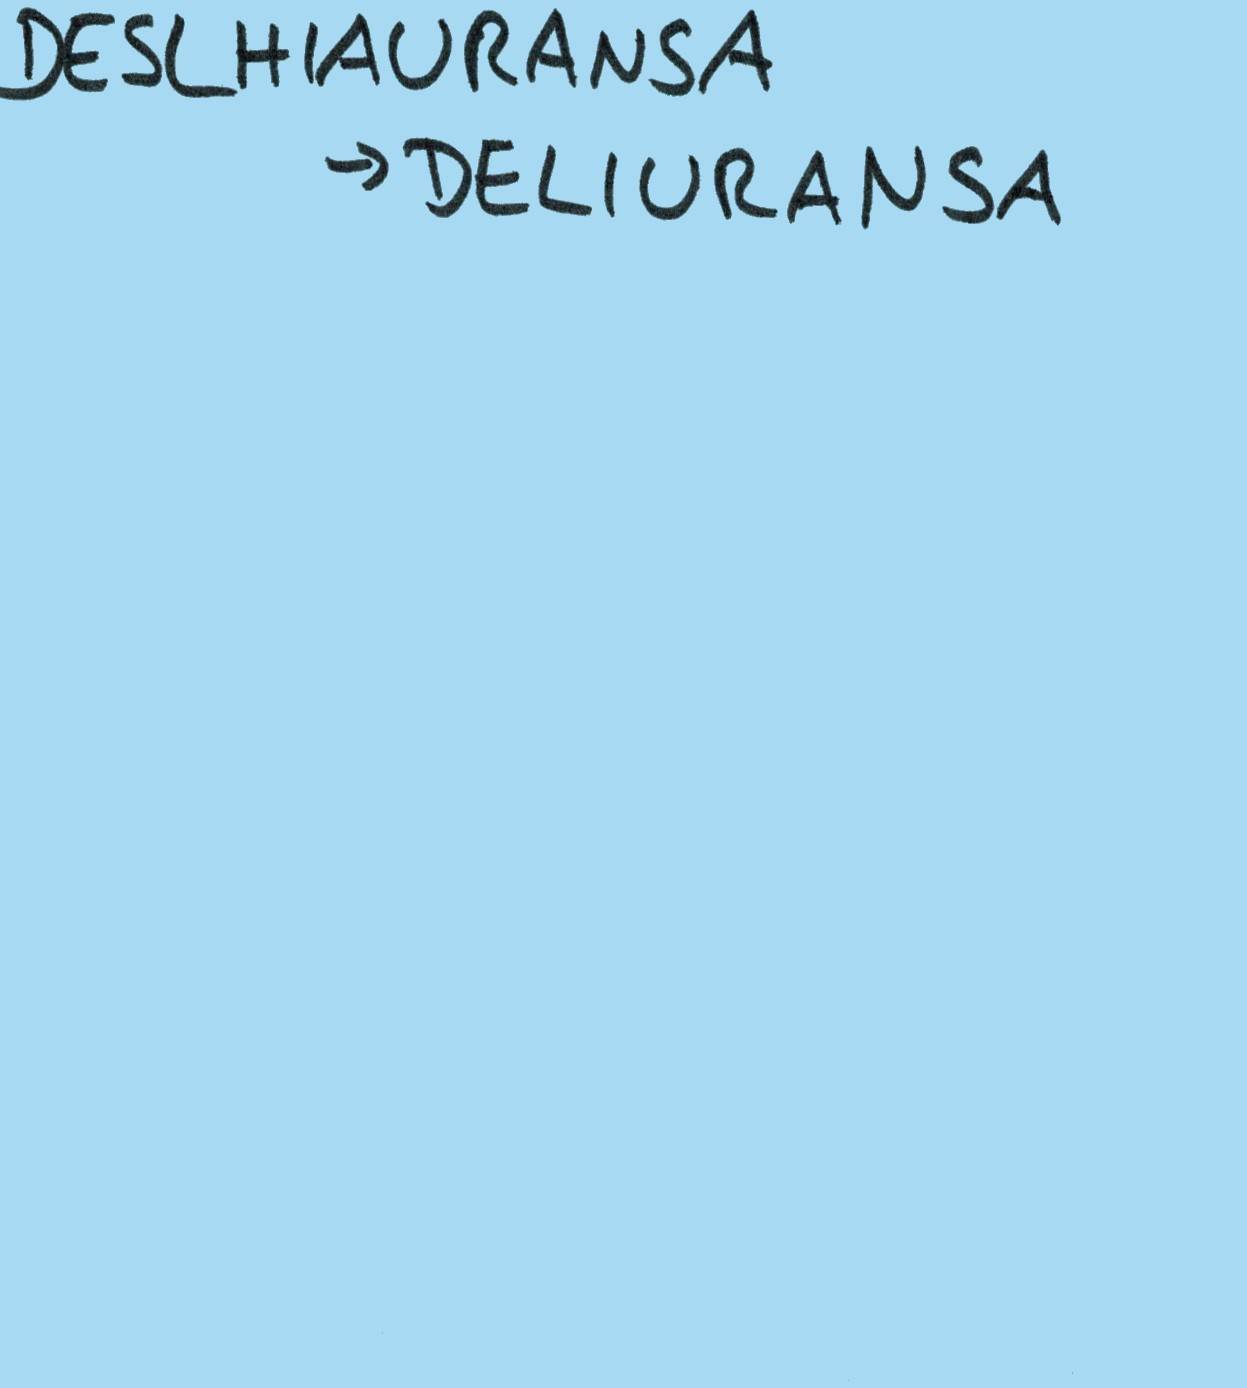 DESLHIAURANSA
→ DELIURANSA